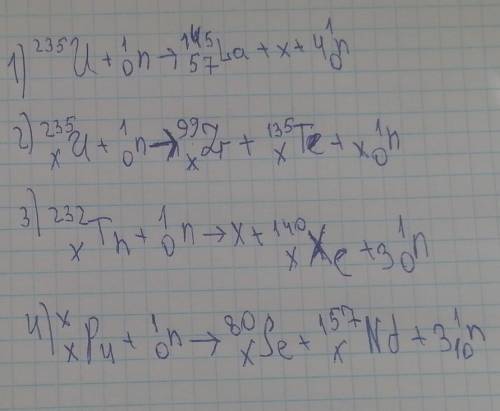 1) ²³⁵U + ¹₀n → ¹⁴⁵₅₇La + x + 4¹₀n
2) ²³⁵ₓU + ¹₀n → ⁹⁹ₓZr + ¹³⁵ₓTe + x¹₀n
3) ²³²ₓTh + ¹₀n → x + ¹⁴⁰ₓXe + 3¹₀n
4) ˣₓPu + ¹₀n → ⁸⁰ₓSe + ¹⁵⁷ₓNd + 3¹₀n